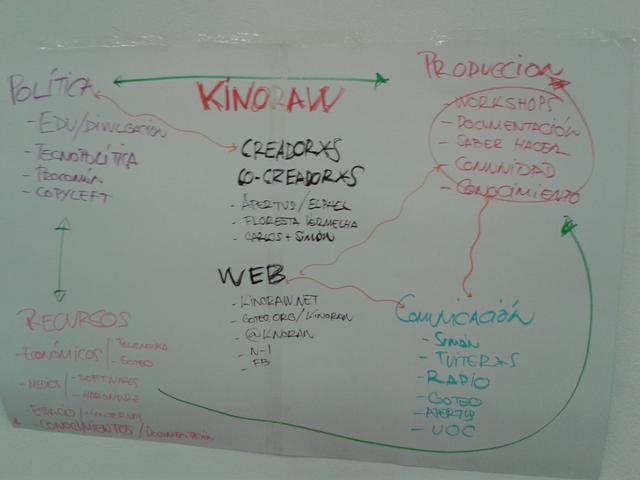 POLÍTICA
- EDU/DIVULGACIÓN
- TECNOPOLÍTICA
- PROCOMÚN
- COPYLEFT
KINORAW
CREADORXS
CO-CREADORXS
- APERTUS/ELPHEL
- FLORESTA VERMELHA
- CARLOS + SIMÓN
WEB
- KINORAW.NET
- GOTEO.ORG/KINORAW
- @KINORAW
- N-1
- FB
PRODUCCION
- WORKSHOPS
- DOCUMENTACIÓN
- SABER HACER
- COMUNIDAD
- CONOCIMIENTO
RECURSOS
- ECONÓMICOS/- TELENOIKA
- GOTEO
- MEDIOS/- SOFTWARES
- HARDWARE
ESPACIO/
- CONOCIMIENTOS/DOCUMENTACIÓN
COMUNICACIÓN
- SIMÓN
- TUITERXS
- RADIO
- GOTEO
- APERTUS
- UOC